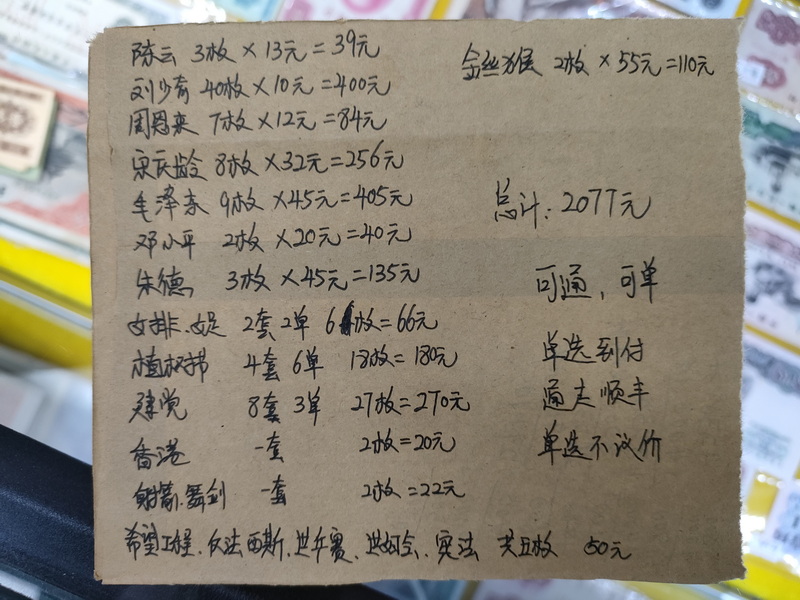 陈云 3枚×13元=39元
刘少奇 40枚×10元=400元
周恩来 7枚×12元=84元
宋庆龄 8枚×32元=256元
毛泽东 9枚×45元=405元
邓小平 2枚×20元=40元
朱德 3枚×45元=135元
女排.女足 2套2单 6枚=66元
植树节 4套 6单 18枚=180元
建党 8套 3单 27枚=270元
香港 一套 2枚=20元
射箭.舞剑 一套 2枚=22元
希望工程、反法西斯、世乒赛、、宪法 共五枚 50元
金丝猴 2枚×55元=110元
总计:2077元
可通,可单
单选到付
通走顺丰
单选不议价